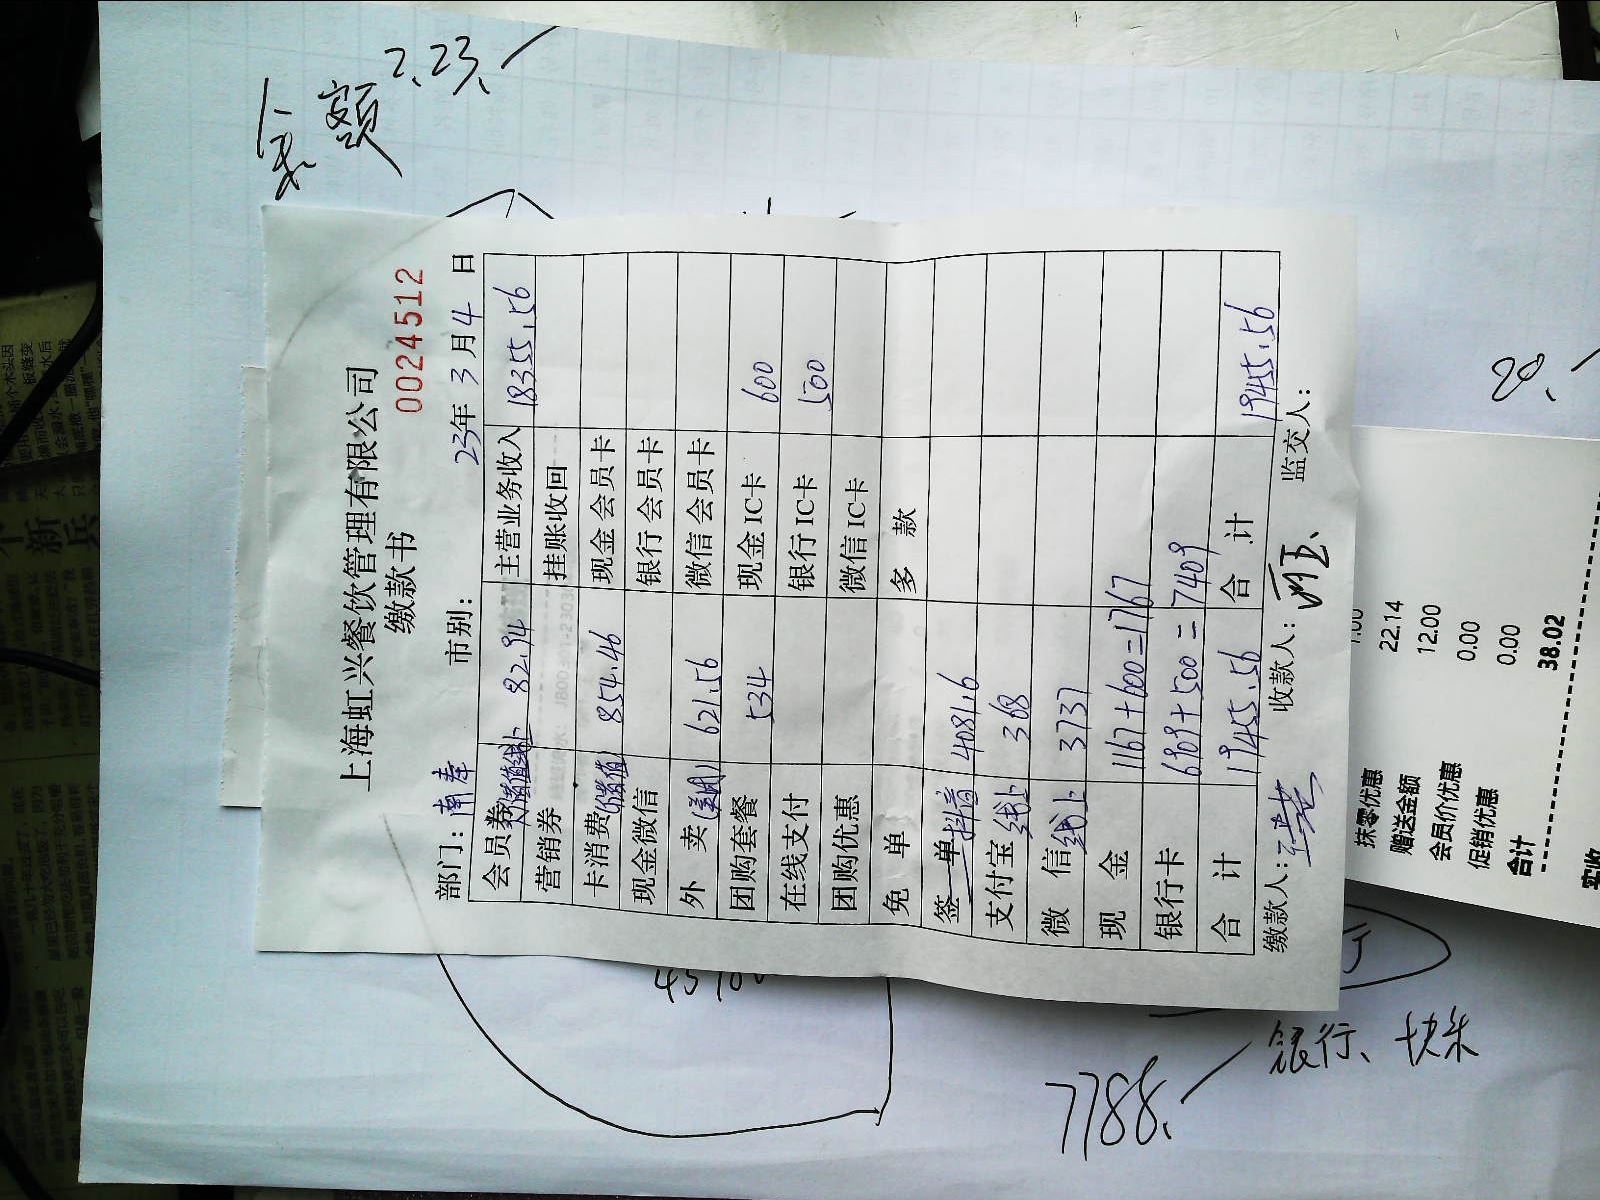 金额 2.23.
上海虹兴餐饮管理有限公司
缴款书 0024512
部门:南奉 市别: 23年 3月 4日
会员券 82.94 主营业务收入 18355.56
营销券 挂账收回
卡消费(储值) 854.46 现金会员卡
现金微信 银行会员卡
外 卖 621.56 微信会员卡
团购套餐 534 现金IC卡 600
在线支付 银行IC卡 500
团购优惠 微信IC卡
免 单 多 款
签 单 抖音 4081.6
支付宝 线上 368
微 信 线上 3737
现 金 1167+600=1767
银行卡 6909+500=7409
合 计 19455.56 合 计 19455.56
缴款人: 收款人: 监交人:
20.
1.00
抹零优惠 22.14
赠送金额 12.00
会员价优惠 0.00
促销优惠 0.00
合计 38.02
实收
7788.
银行、